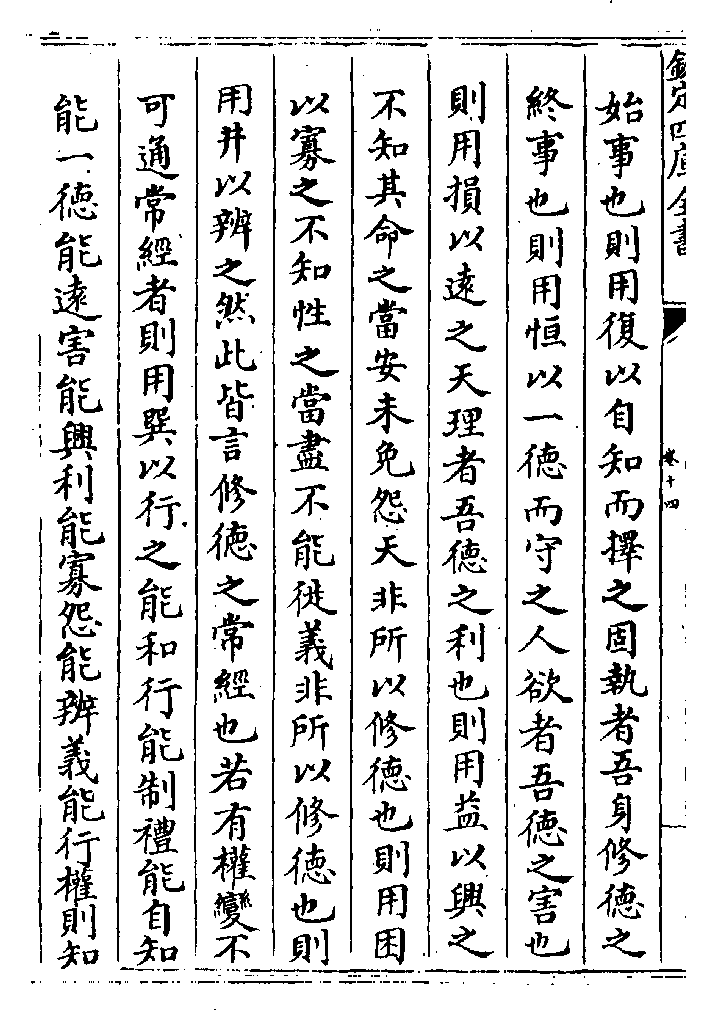 欽定四庫全書
卷十四
始事也則用復以自知而擇之固執者吾身修德之
終事也則用恒以一德而守之人欲者吾德之害也
則用損以遠之天理者吾德之利也則用益以興之
不知其命之當安未免怨天非所以修德也則用困
以寡之不知性之當盡不能徙義非所以修德也則
用井以辨之然此皆言修德之常經也若有權變不
可通常經者則用巽以行之能和行能制禮能自知
能一德能遠害能興利能寡怨能辨義能行權則知